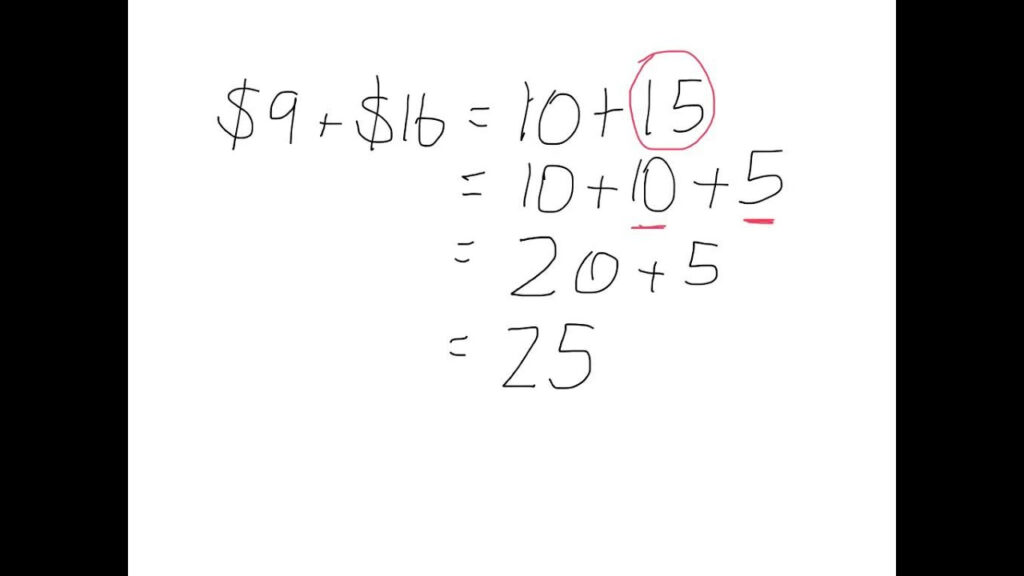 $9 + $16 = 10 + 15
= 10 + 10 + 5
= 20 + 5
= 25